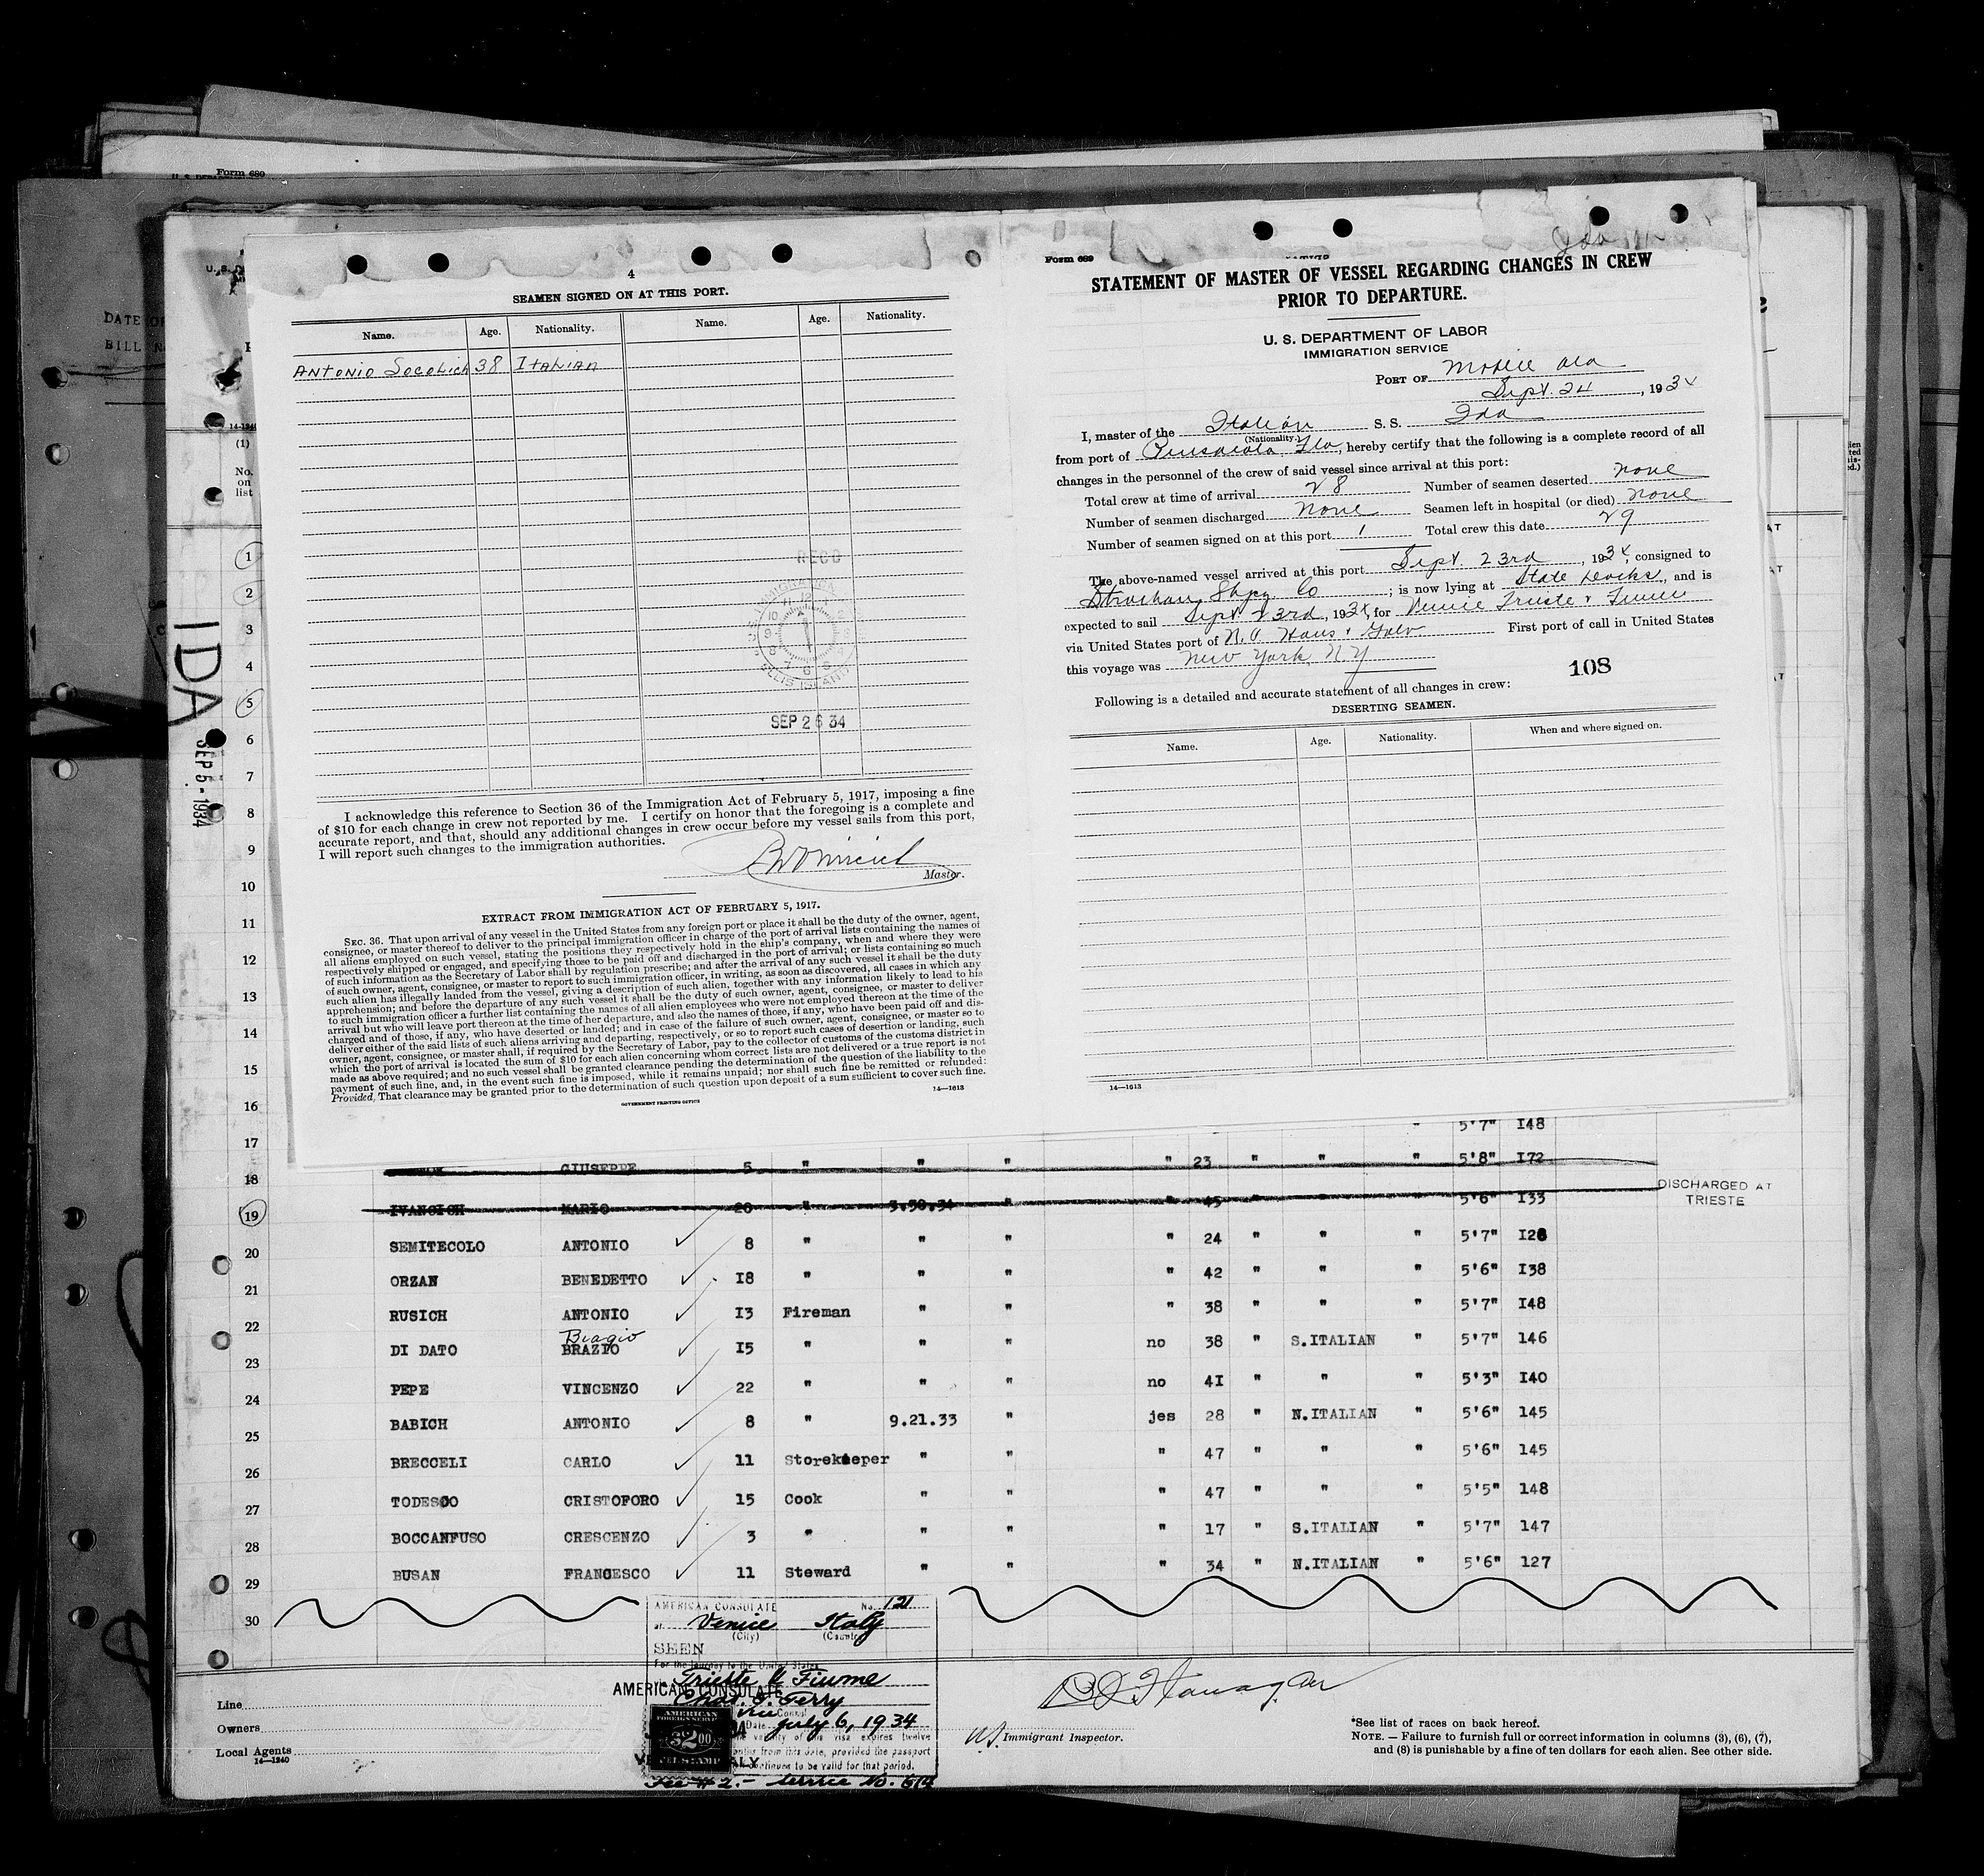 Form 680
4
SEAMEN SIGNED ON AT THIS PORT.
Name. Age. Nationality. Name. Age. Nationality.
ANTONIO SOCOLICH 38 ITALIAN
REC'D
IMMIGRATION
ELLIS ISLAND
SEP 26 34
I acknowledge this reference to Section 36 of the Immigration Act of February 5, 1917, imposing a fine
of $10 for each change in crew not reported by me. I certify on honor that the foregoing is a complete and
accurate report, and that, should any additional changes in crew occur before my vessel sails from this port,
I will report such changes to the immigration authorities.
Master.
EXTRACT FROM IMMIGRATION ACT OF FEBRUARY 5, 1917.
SEC. 36. That upon arrival of any vessel in the United States from any foreign port or place it shall be the duty of the owner, agent,
consignee, or master thereof to deliver to the principal immigration officer in charge of the port of arrival lists containing the names of
all aliens employed on such vessel, stating the positions they respectively hold in the ship's company, when and where they were
respectively shipped or engaged, and specifying those to be paid off and discharged in the port of arrival; or lists containing so much
of such information as the Secretary of Labor shall by regulation prescribe; and after the arrival of any such vessel it shall be the duty
of such owner, agent, consignee, or master to report to such immigration officer, in writing, as soon as discovered, all cases in which any
such alien has illegally landed from the vessel, giving a description of such alien, together with any information likely to lead to his
apprehension; and before the departure of any such vessel it shall be the duty of such owner, agent, consignee, or master to deliver
to such immigration officer a further list containing the names of all alien employees who were not employed thereon at the time of the
arrival but who will leave port thereon at the time of her departure, and also the names of those, if any, who have been paid off and dis-
charged and of those, if any, who have deserted or landed; and in case of the failure of such owner, agent, consignee, or master so to
deliver either of the said lists of such aliens arriving and departing, respectively, or so to report such cases of desertion or landing, such
owner, agent, consignee, or master shall, if required by the Secretary of Labor, pay to the collector of customs of the customs district in
which the port of arrival is located the sum of $10 for each alien concerning whom correct lists are not delivered or a true report is not
made as above required; and no such vessel shall be granted clearance pending the determination of the question of the liability to the
payment of such fine, and, in the event such fine is imposed, while it remains unpaid; nor shall such fine be remitted or refunded:
Provided, That clearance may be granted prior to the determination of such question upon deposit of a sum sufficient to cover such fine.
14—1613
GOVERNMENT PRINTING OFFICE
Form 689
Ida
STATEMENT OF MASTER OF VESSEL REGARDING CHANGES IN CREW
PRIOR TO DEPARTURE.
U. S. DEPARTMENT OF LABOR
IMMIGRATION SERVICE
PORT OF Mobile Ala
Sept. 24, 1934
I, master of the Italian S. S. Ida
(Nationality.)
from port of Pensacola Fla, hereby certify that the following is a complete record of all
changes in the personnel of the crew of said vessel since arrival at this port:
Total crew at time of arrival 28 Number of seamen deserted none
Number of seamen discharged None Seamen left in hospital (or died) none
Number of seamen signed on at this port 1 Total crew this date 29
The above-named vessel arrived at this port Sept. 23rd, 1934, consigned to
Strachan Shpg Co; is now lying at State Docks, and is
expected to sail Sept 23rd, 1934, for Venice Trieste + Fiume
via United States port of N.O. Hous + Galv First port of call in United States
this voyage was New York NY
108
Following is a detailed and accurate statement of all changes in crew:
DESERTING SEAMEN.
Name. Age. Nationality. When and where signed on.
14—1613
DATE OF
BILL
14-1240
(1)
No.
on
list
IDA
SEP 5 - 1934
1
2
3
4
5
6
7
8
9
10
11
12
13
14
15
16
17 " 5'7" I48
18 GIUSEPPE 5 " " " " 23 " " " 5'8" I72
19 IVANCICH MARIO 20 " 3.30.34 " " 45 " " 5'6" I33 DISCHARGED AT TRIESTE
20 SEMITECOLO ANTONIO 8 " " " " 24 " " " 5'7" I28
21 ORZAN BENEDETTO I8 " " " " 42 " " " 5'6" I38
22 RUSICH ANTONIO I3 Fireman " " " 38 " " " 5'7" I48
Biagio
23 DI DATO BRAZIO I5 " " " no 38 " S.ITALIAN " 5'7" 146
24 PEPE VINCENZO 22 " " " no 4I " " " 5'3" I40
25 BABICH ANTONIO 8 " 9.21.33 " jes 28 " N.ITALIAN " 5'6" 145
26 BRECCELI CARLO 11 Storekeeper " " " 47 " " " 5'6" 145
27 TODESCO CRISTOFORO 15 Cook " " " 47 " " " 5'5" 148
28 BOCCANFUSO CRESCENZO 3 " " " " 17 " S.ITALIAN " 5'7" 147
29 BUSAN FRANCESCO 11 Steward " " " 34 " N.ITALIAN " 5'6" 127
30
AMERICAN CONSULATE No. 121
at Venice Italy
(City) (Country)
SEEN
For the journey to the United States
Trieste & Fiume
AMERICAN CONSULATE
Chas. T. Terry
Vice Consul
Date July 6, 1934
validity of this visa expires twelve
months from this date, provided the passport
continues to be valid for that period.
AMERICAN
FOREIGN SERVICE
$2.00
FEE STAMP
Fee # 2.- Service No. 614
Line
Owners
Local Agents
14—1240
Flanagan
Immigrant Inspector.
*See list of races on back hereof.
NOTE. — Failure to furnish full or correct information in columns (3), (6), (7),
and (8) is punishable by a fine of ten dollars for each alien. See other side.